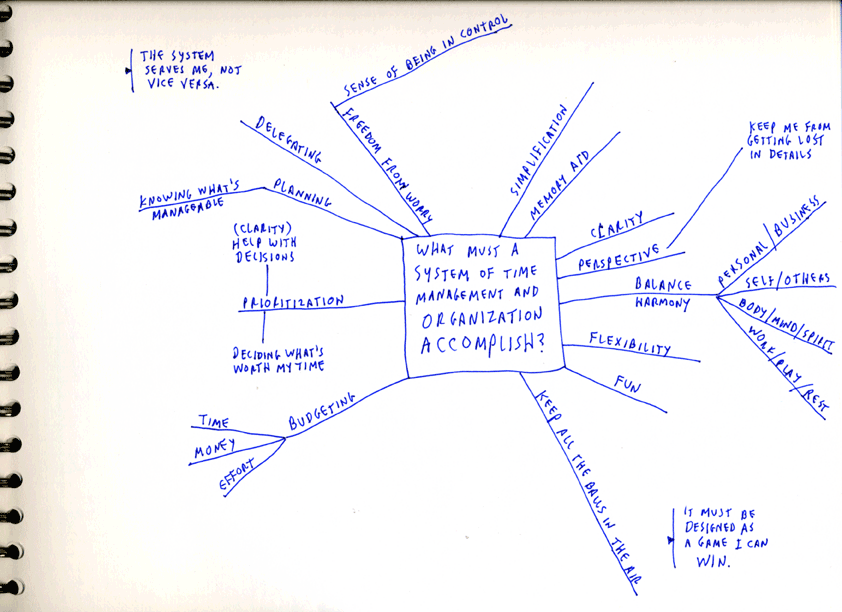 THE SYSTEM
SERVES ME, NOT
VICE VERSA.
SENSE OF BEING IN CONTROL
FREEDOM FROM WORRY
DELEGATING
PLANNING
KNOWING WHAT'S
MANAGEABLE
SIMPLIFICATION
MEMORY AID
CLARITY
PERSPECTIVE
KEEP ME FROM
GETTING LOST
IN DETAILS
(CLARITY)
HELP WITH
DECISIONS
PRIORITIZATION
DECIDING WHAT'S
WORTH MY TIME
WHAT MUST A
SYSTEM OF TIME
MANAGEMENT AND
ORGANIZATION
ACCOMPLISH?
BALANCE
HARMONY
PERSONAL/BUSINESS
SELF/OTHERS
BODY/MIND/SPIRIT
WORK/PLAY/REST
FLEXIBILITY
FUN
BUDGETING
TIME
MONEY
EFFORT
KEEP ALL THE BALLS IN THE AIR
IT MUST BE
DESIGNED AS
A GAME I CAN
WIN.